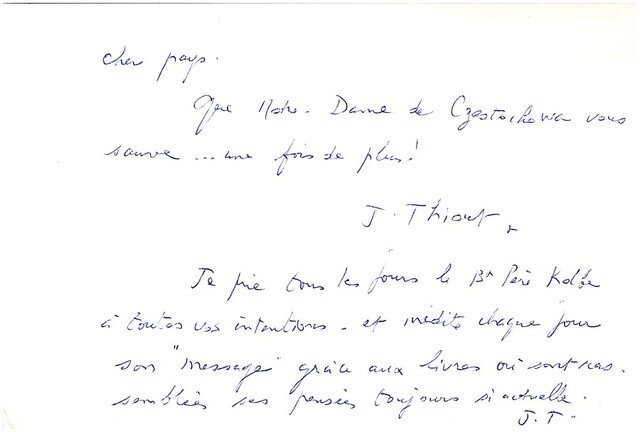 cher pays.
Que Notre-Dame de Częstochowa vous
sauve ... une fois de plus!
J. Thiout
Je prie tous les jours le Bx Père Kolbe
à toutes vos intentions - et médite chaque jour
son "message" grâce aux livres où sont ras-
semblées ses pensées toujours si actuelle.
J.T.